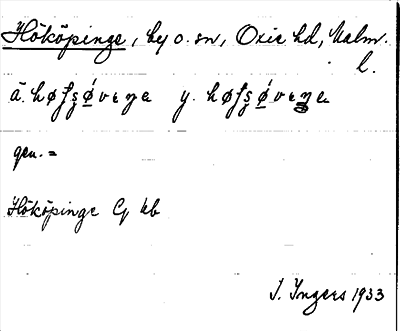 Hököpinge, by o. sn, Oxie hd, Malm.
l.
ä. høfs̩ǿvɛŋɛ y. høfs̩ǿvɛŋɛ
gen. =
Hököpinge G kb
I. Ingers 1933